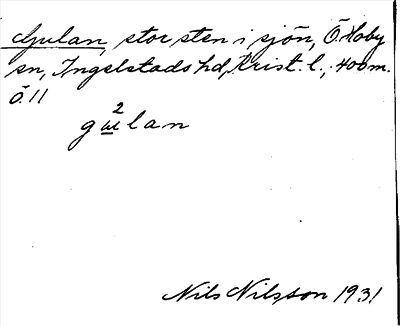 Gulan, stor sten i sjön, Ö. Hoby
sn, Ingelstads hd, Krist. l., 400 m.
Ö. 11
2
gulan
Nils Nilsson 1931